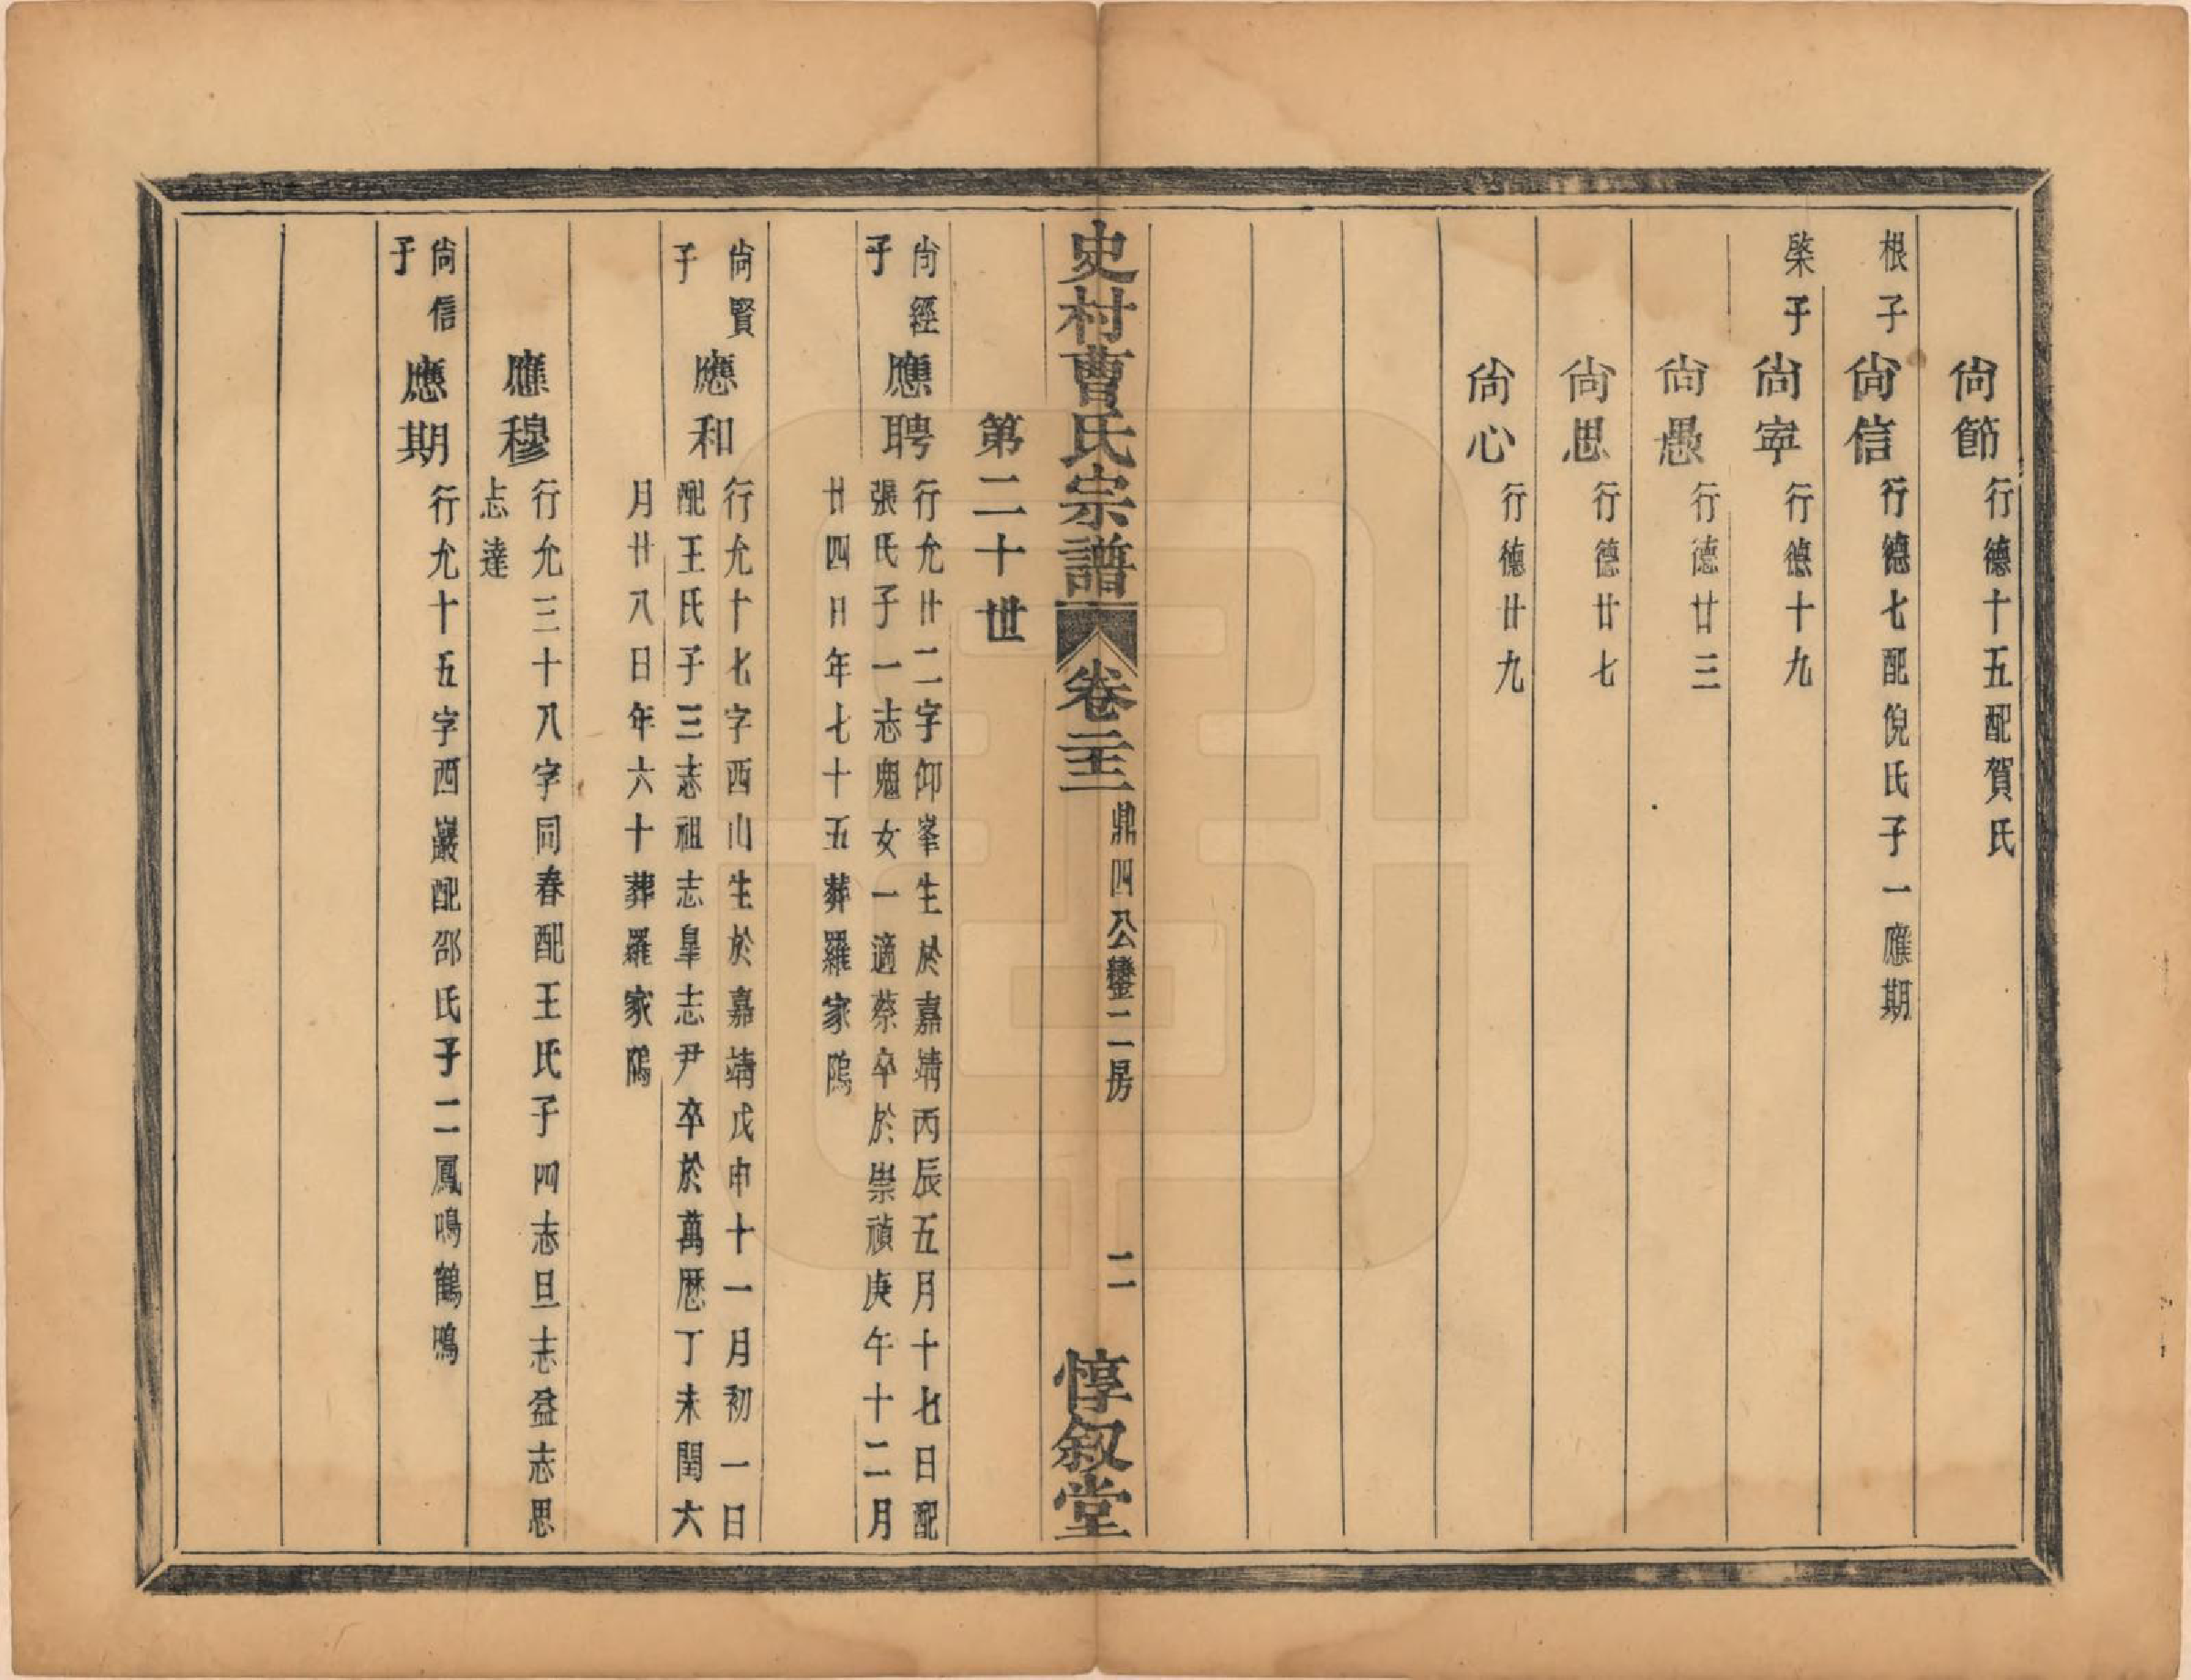 尙節 行德十五配賀氏
根子 尙信 行德七配倪氏子一應期
棨子 尙寜 行德十九
尙愚 行德廿三
尙思 行德廿七
尙心 行德廿九
史村曹氏宗譜 卷二十三 鼎四公鑾二房 二 惇叙堂
第二十世
尙經子 應聘 行允廿二字仰峯生於嘉靖丙辰五月十七日配
張氏子一志魁女一適蔡卒於崇禎庚午十二月
廿四日年七十五葬羅家隖
尙賢子 應和 行允十七字西山生於嘉靖戊申十一月初一日
配王氏子三志祖志皐志尹卒於萬厯丁未閏六
月廿八日年六十葬羅家隖
應穆 行允三十八字同春配王氏子四志旦志益志思
志達
尙信子 應期 行允十五字西巖配邵氏子二鳳鳴鶴鳴